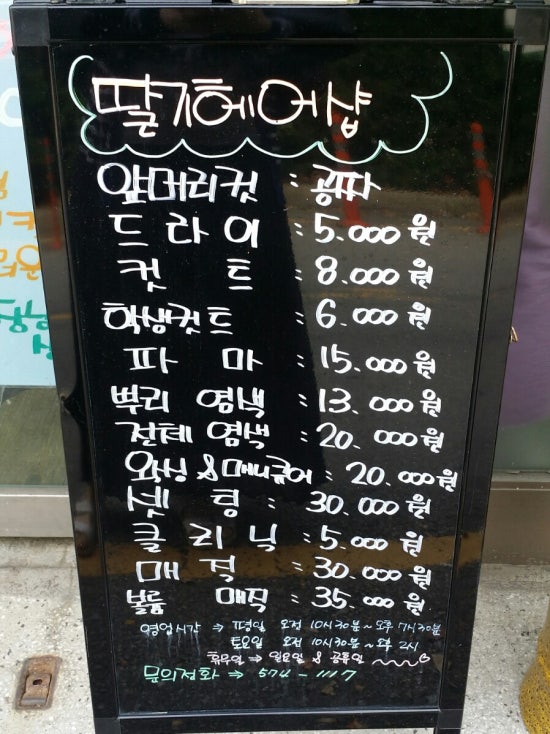 딸기헤어샵
앞머리컷 : 공짜
드라이 : 5.000원
컷트 : 8.000원
학생컷트 : 6.000원
파마 : 15.000원
뿌리 염색 : 13.000원
전체 염색 : 20.000원
왁싱 & 매니큐어 : 20.000원
셋팅 : 30.000원
클리닉 : 5.000원
매직 : 30.000원
볼륨 매직 : 35.000원
영업시간 ⇒ 평일 오전 10시30분~오후 7시30분
토요일 오전 10시30분~오후 2시
휴무일 ⇒ 일요일 & 공휴일
문의전화 ⇒ 574-1117